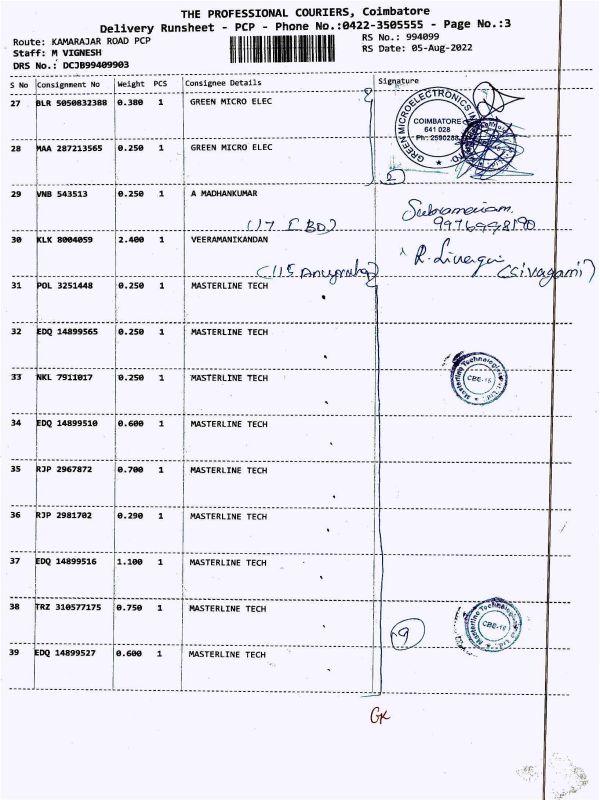 THE PROFESSIONAL COURIERS, Coimbatore
Delivery Runsheet - PCP - Phone No.:0422-3505555 - Page No.:3
Route: KAMARAJAR ROAD PCP
RS No.: 994099
Staff: M VIGNESH
RS Date: 05-Aug-2022
DRS No.: DCJB99409903
S No Consignment No Weight PCS Consignee Details Signature
27 BLR 5050832388 0.380 1 GREEN MICRO ELEC
GREEN MICROELECTRONICS
COIMBATORE
641 028
Ph: 2590288
28 MAA 287213565 0.250 1 GREEN MICRO ELEC
2
29 VNB 543513 0.250 1 A MADHANKUMAR
30 KLK 8004059 2.400 1 VEERAMANIKANDAN
(Sivagami)
31 POL 3251448 0.250 1 MASTERLINE TECH
32 EDQ 14899565 0.250 1 MASTERLINE TECH
33 NKL 7911017 0.250 1 MASTERLINE TECH
Masterline Technologies
CBE-15
34 EDQ 14899510 0.600 1 MASTERLINE TECH
35 RJP 2967872 0.700 1 MASTERLINE TECH
36 RJP 2981702 0.290 1 MASTERLINE TECH
37 EDQ 14899516 1.100 1 MASTERLINE TECH
38 TRZ 310577175 0.750 1 MASTERLINE TECH
9
39 EDQ 14899527 0.600 1 MASTERLINE TECH